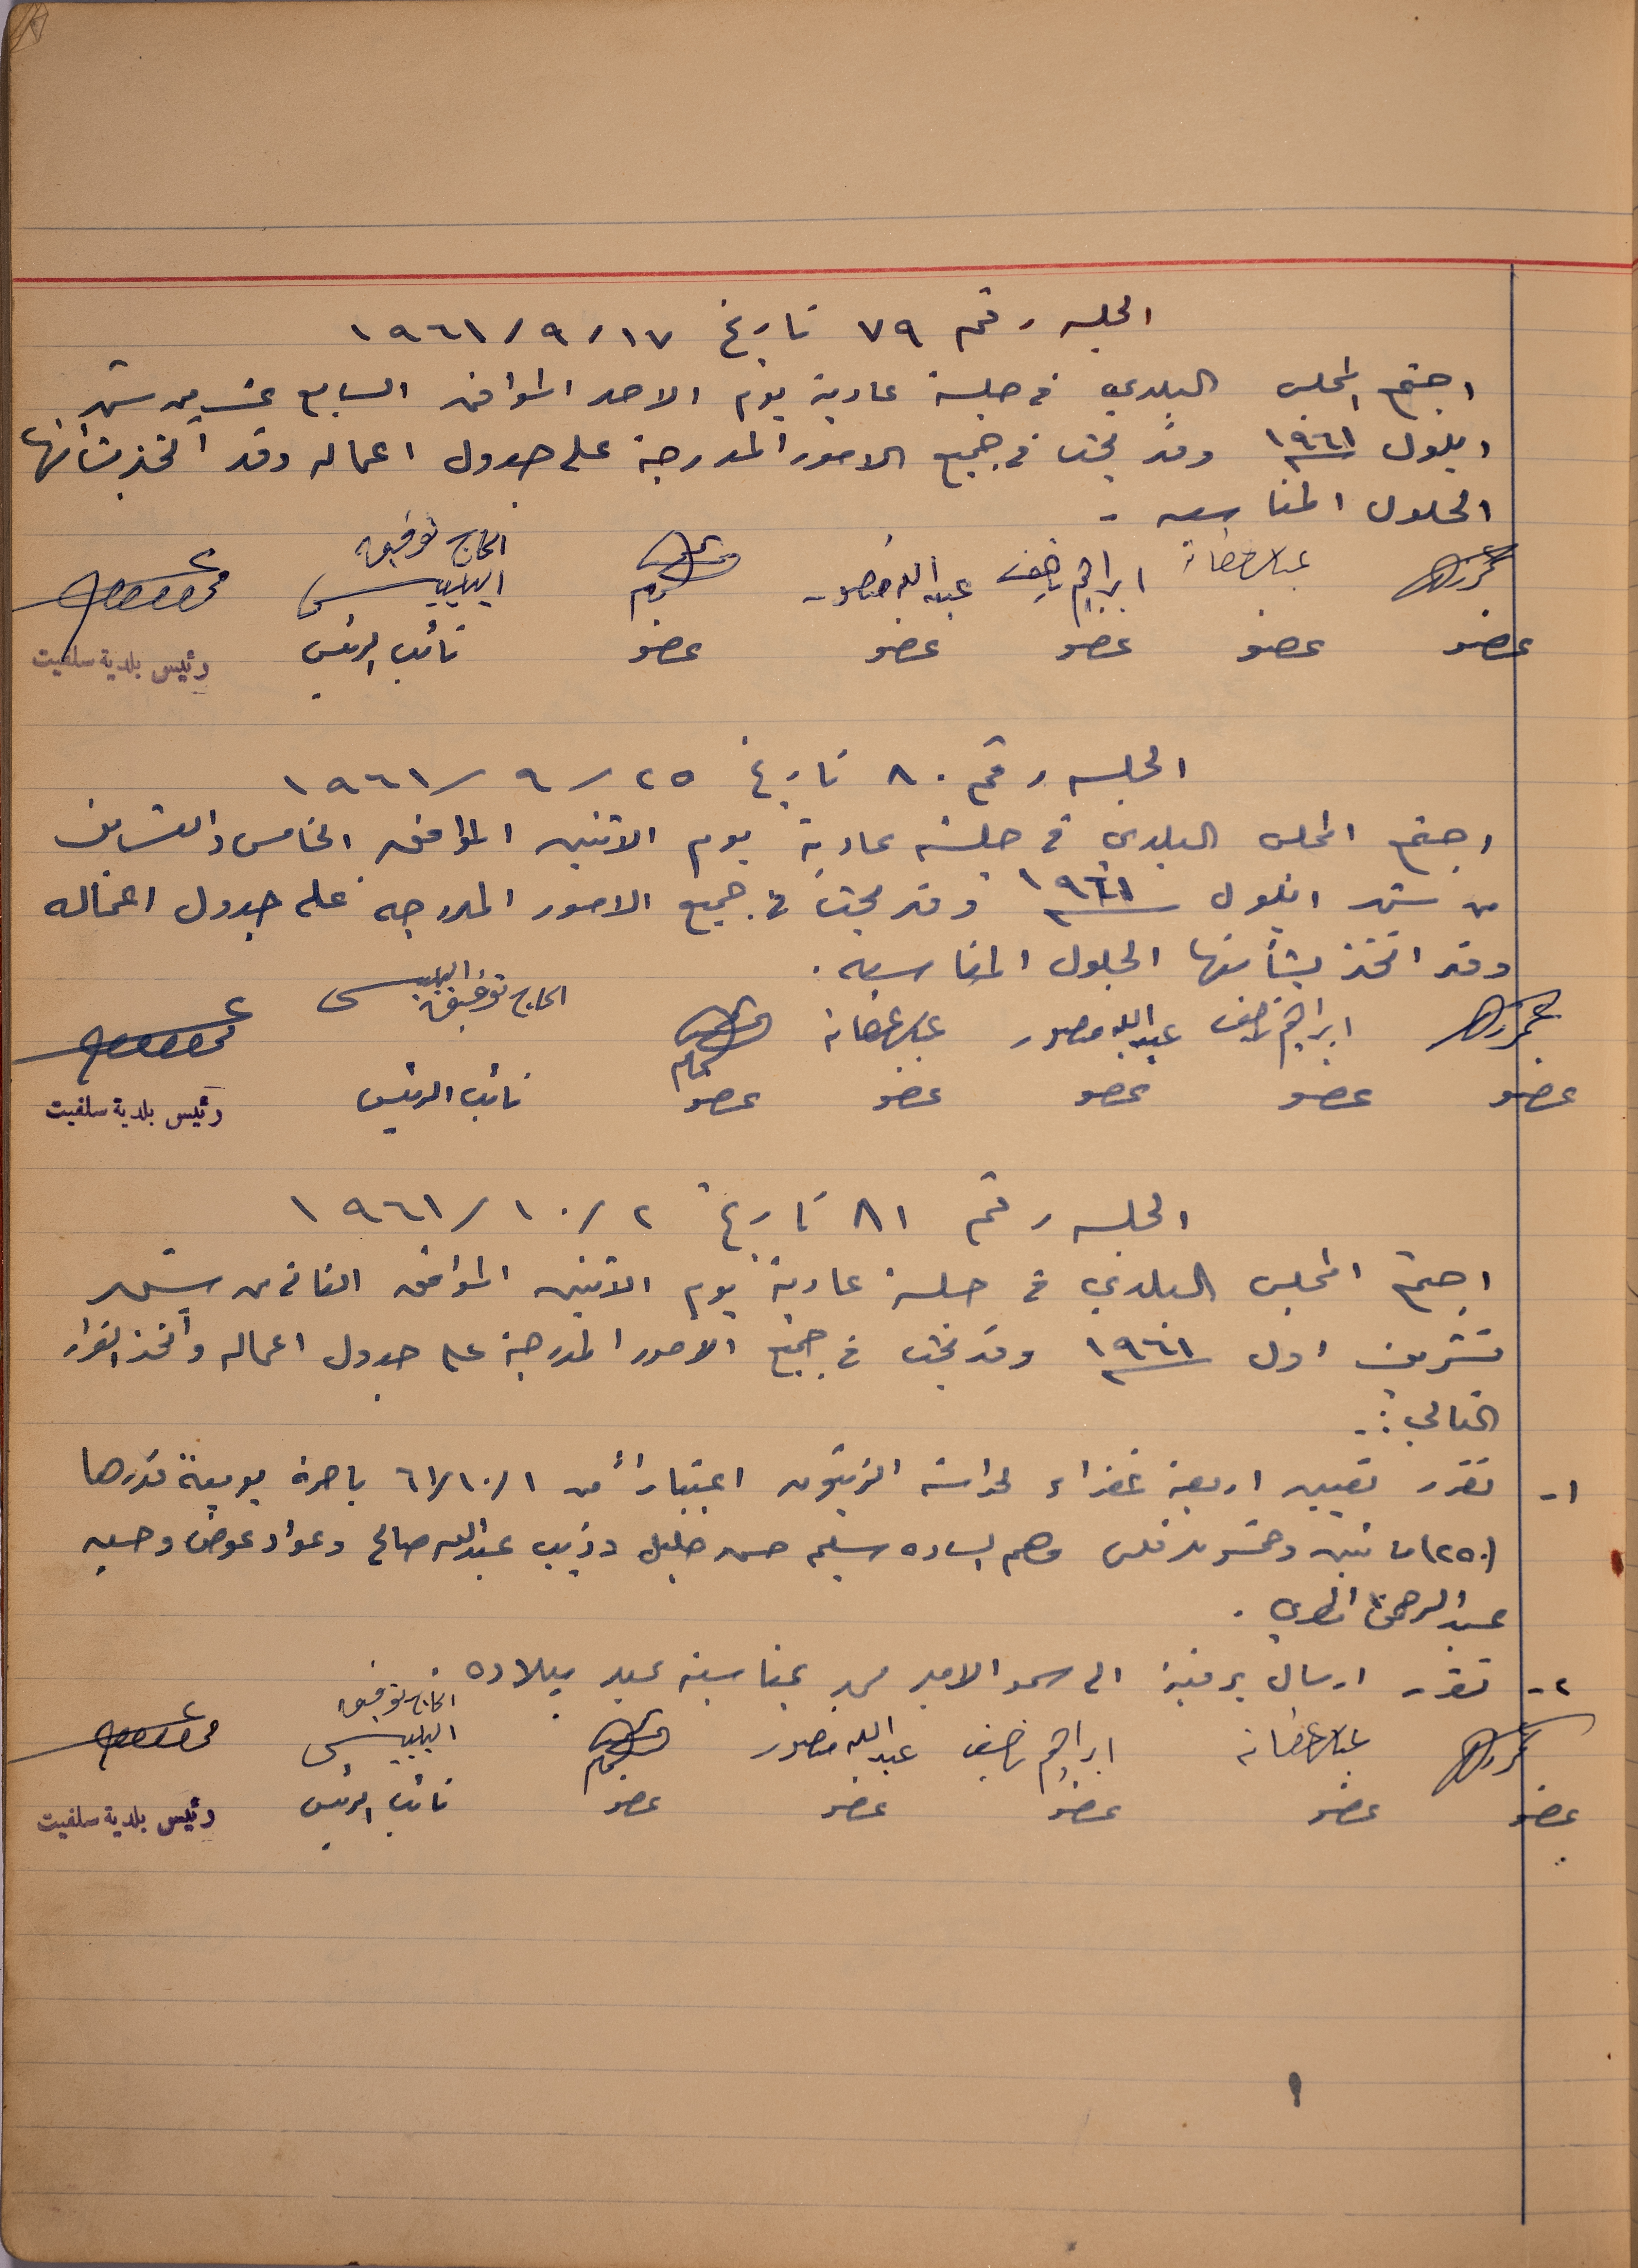 الجلسه رقم ٧٩ تاريخ ١٧/٩/١٩٦١
اجتمع المجلس البلدي في جلسة عادية يوم الاحد الموافق السابع عشر من شهر
ايلول ١٩٦١ وقد بحث في جميع الامور المدرجة على جدول اعماله وقد اتخذ بشأنها
الحلول المناسبه -
ابراهيم ناصيف عبدالله منصور الحاج توفيق
البلبيسي
عضو عضو عضو عضو عضو نائب الرئيس رئيس بلدية سلفيت
الجلسه رقم ٨٠ تاريخ ٢٥/٩/١٩٦١
اجتمع المجلس البلدي في جلسة عادية يوم الاثنين الموافق الخامس والعشرين
من شهر ايلول ١٩٦١ وقد بحث في جميع الامور المدرجه على جدول اعماله
وقد اتخذ بشأنها الحلول المناسبه .
ابراهيم ناصيف عبدالله منصور الحاج توفيق البلبيسي
عضو عضو عضو عضو عضو نائب الرئيس رئيس بلدية سلفيت
الجلسه رقم ٨١ تاريخ ٢/١٠/١٩٦١
اجتمع المجلس البلدي في جلسة عادية يوم الاثنين الموافق الثاني من شهر
تشرين اول ١٩٦١ وقد بحث في جميع الامور المدرجة على جدول اعماله واتخذ القرار
التالي :-
١- تقرر تعيين اربعة خفراء لحراسة الزيتون اعتباراً من ٦١/١٠/١ باجرة يومية قدرها
(٢٥٠) مائتين وخمسون فلس وهم الساده سليم حسن خليل وذيب عبدالله صالح وعواد عوض وحسن
عبدالرحمن
٢- تقرر ارسال برقية الى سمو الامير محمد بمناسبة عيد ميلاده
ابراهيم ناصيف عبدالله منصور الحاج توفيق
البلبيسي
عضو عضو عضو عضو عضو نائب الرئيس رئيس بلدية سلفيت